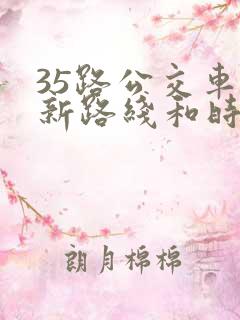 35路公交车
新路线和时
朗月棉棉